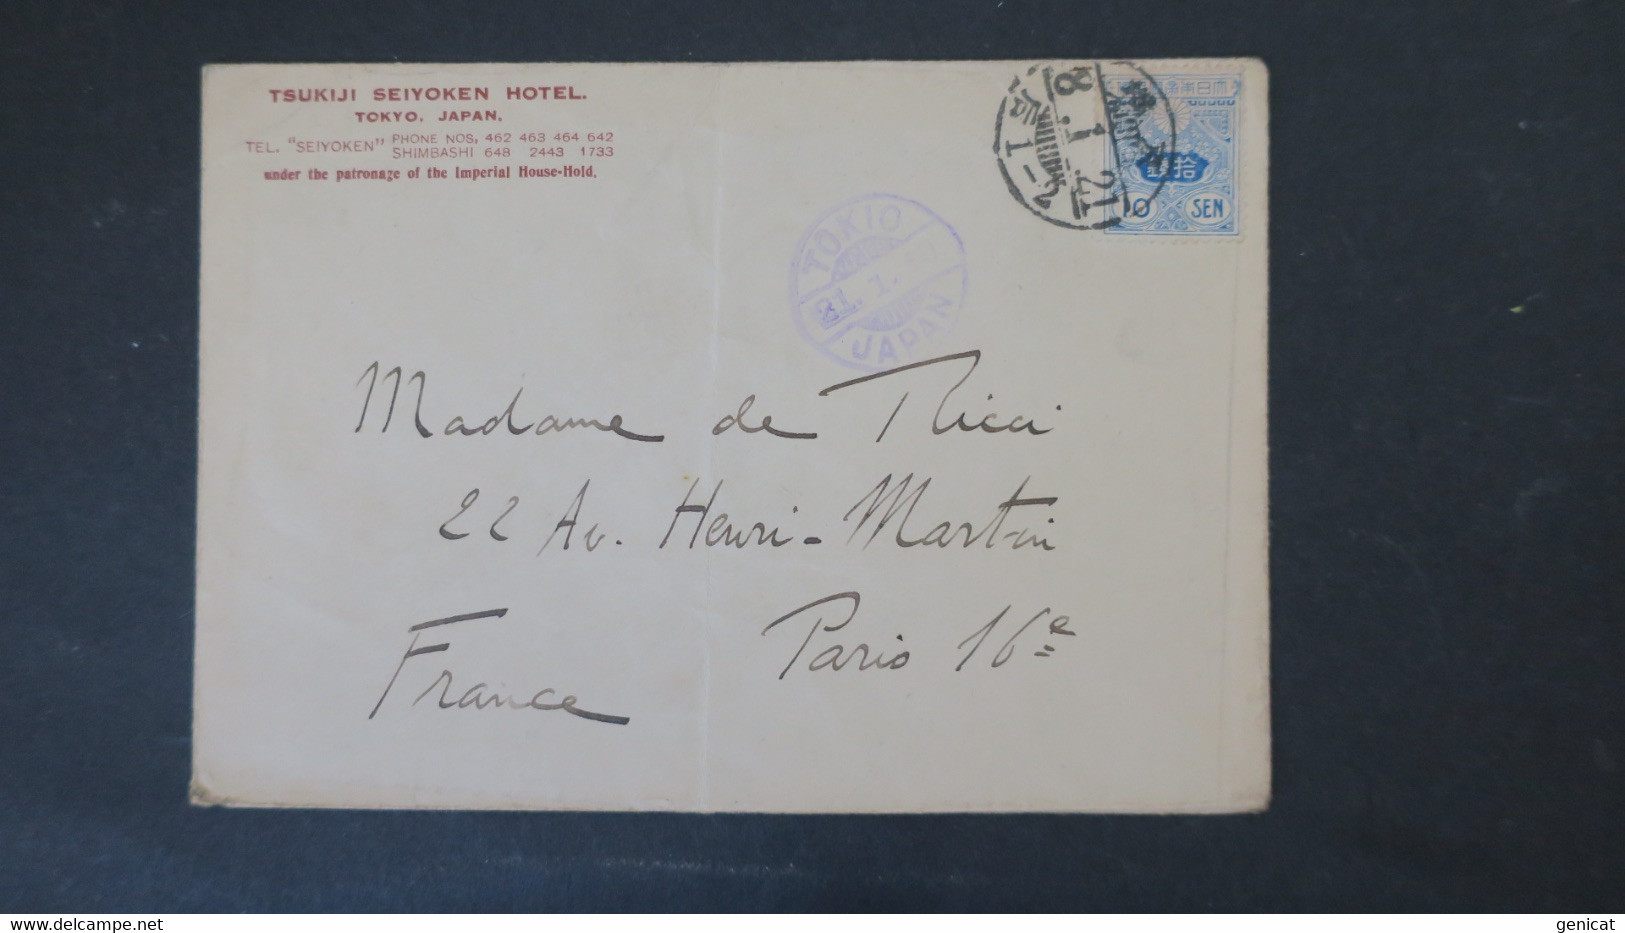 TSUKIJI SEIYOKEN HOTEL.
TOKYO, JAPAN.
TEL. "SEIYOKEN" PHONE NOS, 462 463 464 642
SHIMBASHI 648 2443 1733
under the patronage of the Imperial House-Hold.
8.1.21
拾銭
10 SEN
TOKIO
21. 1.
JAPAN
Madame de Ricci
22 Av. Henri-Martin
Paris 16e
France
delcampe.net
genicat